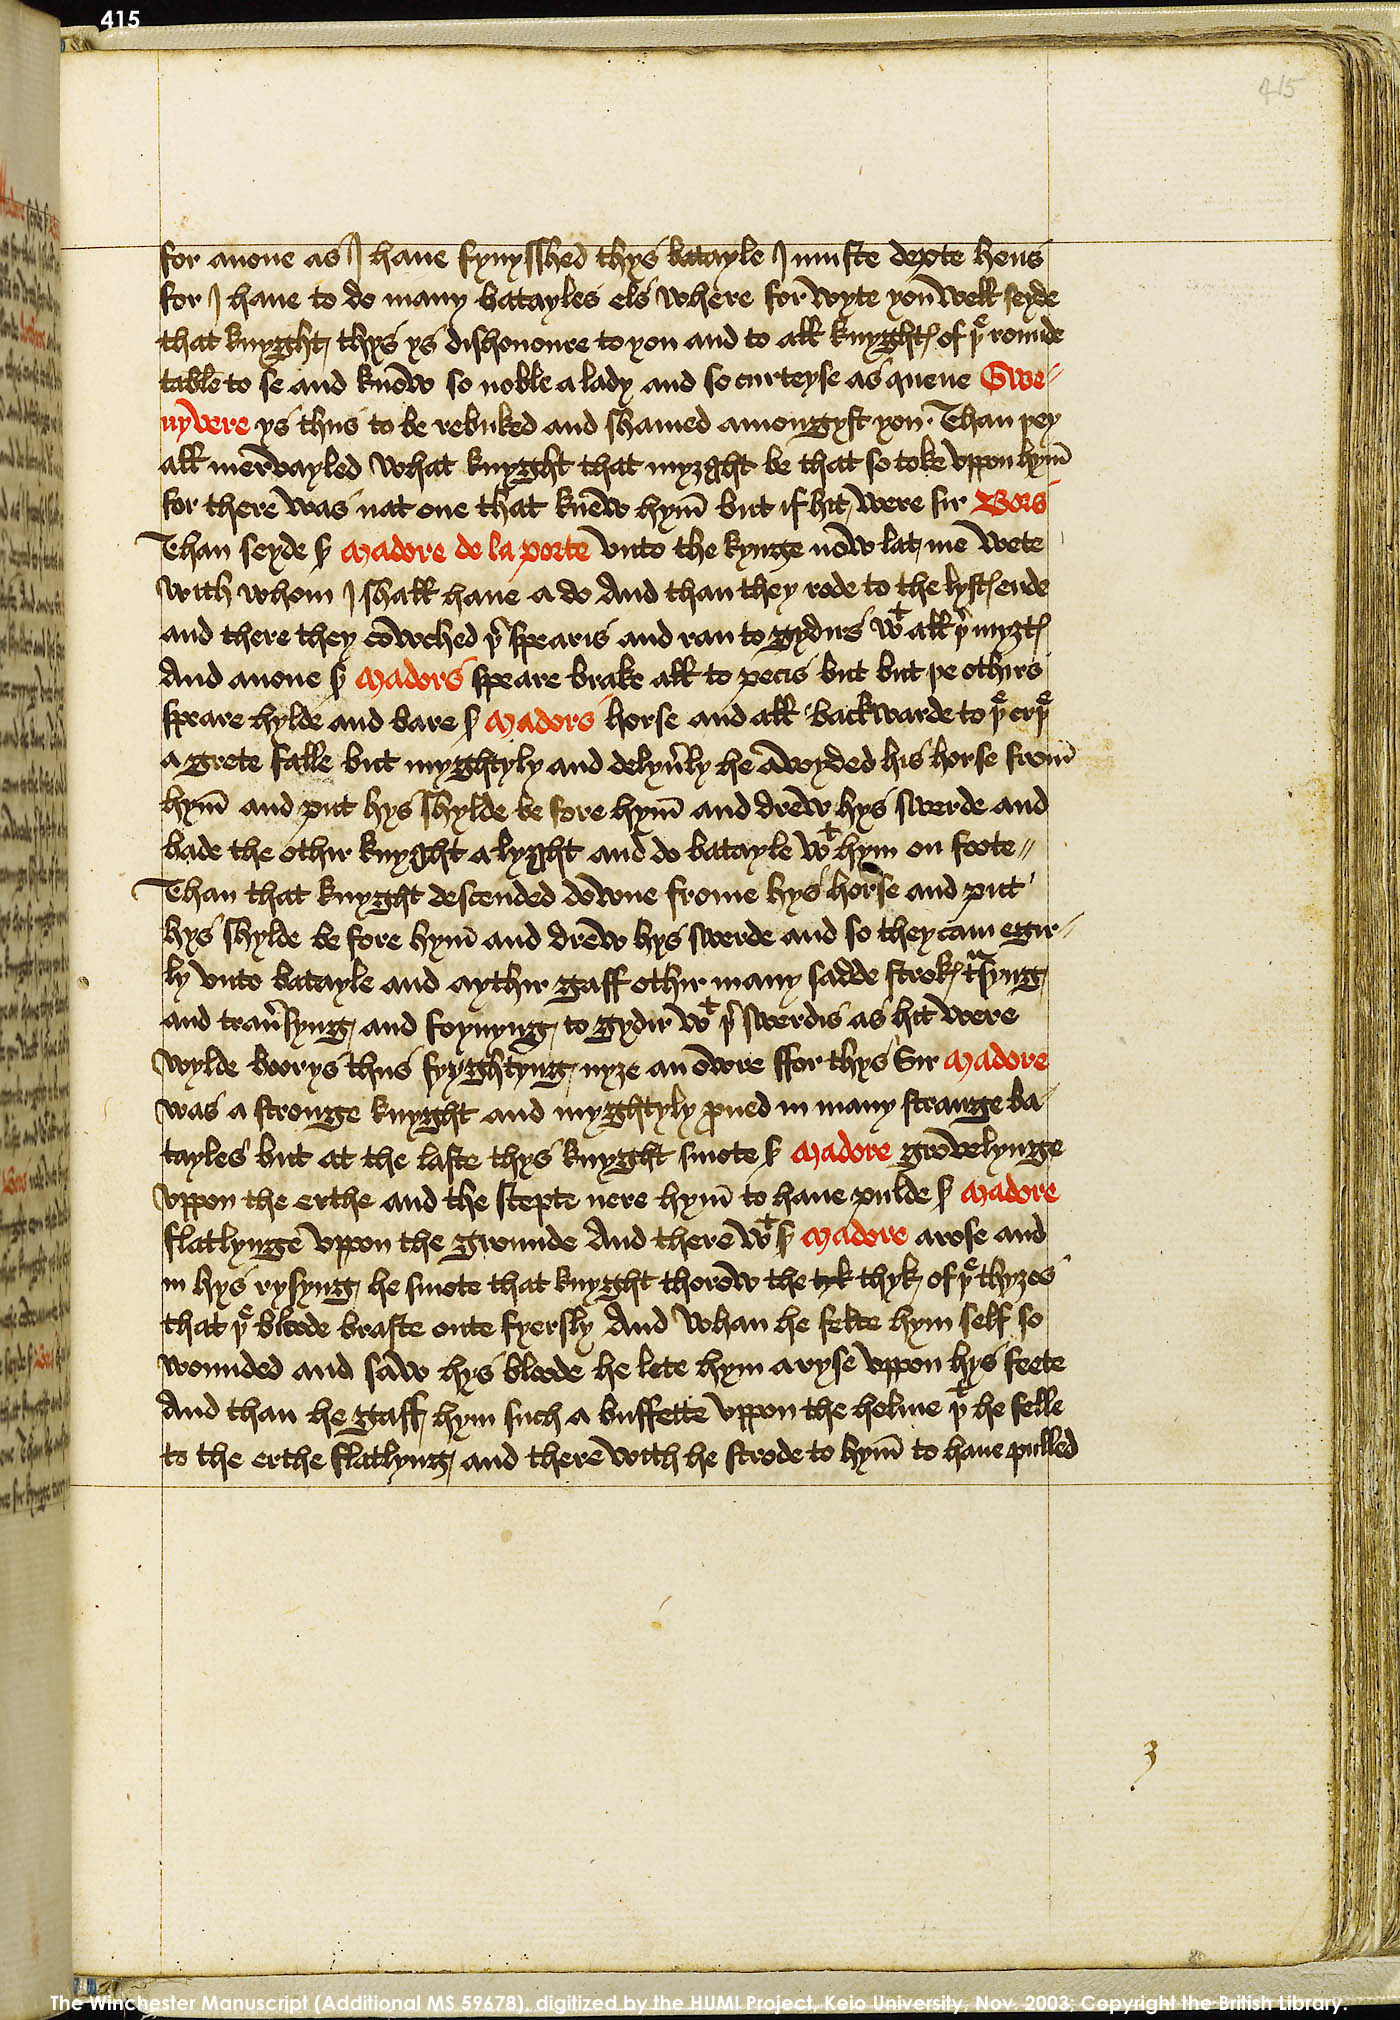 415
415
for anone as I haue fynysshed thys batayle I muste deꝑte hens
for I haue to do many batayles els where for wyte you well seyde
that knyght thys ys dishonoure to you and to all knyghtꝭ of þͤ rounde
table to se and know so noble a lady and so curteyse as quene Gwe-
nyvere ys thus to be rebuked and shamed amongyst you. Than þey
all mervayled what knyght that myȝght be that so toke vppon hym̄
for there was nat one that knew hym̄ but if hit were sir Bors
Than seyde sʳ Madore de la porte vnto the kynge now lat me wete
with whom I shall haue a do And than they rode to the lystꝭ ende
and there they cowched þʳ spearis and ran to gydirs wᵗ all þʳ myȝtꝭ
And anone sʳ Madors speare brake all to pecis but but þe othirs
speare hylde and bare sʳ Madors horse and all backwarde to þͤ erþͤ
a grete falle but myghtyly and delyuʳly he avoyded his horse from̄
hym̄ and put hys shylde be fore hym̄ and drew hys swerde and
bade the othir knyght a lyght and do batayle wᵗ hym on foote //
Than that knyght descended downe frome hys horse and put
hys shylde be fore hym̄ and drew hys swerde and so they cam egir-
ly vnto batayle and aythir gaff othir many sadde strokꝭ tᵃsyng
and trauʳsyng and foynyng to gydir wᵗ þʳ swerdis as hit were
wylde boorys thus fyyghtyng nyȝe an owre ffor thys Sir Madore
was a stronge knyght and myghtyly ꝓued in many strange ba-
tayles but at the laste thys knyght smote sʳ Madore grovelynge
vppon the erthe and the stepte nere hym̄ to haue pulde sʳ Madore
flatlynge vppon the grounde And therewᵗ sʳ Madore arose and
in hys rysyng he smote that knyght thorow the tyk thyk of þͤ thyȝes
that þͤ bloode braste oute fyersly And whan he felte hym self so
wounded and saw hys bloode he lete hym aryse vppon hys feete
And than he gaff hym such a buffette vppon the helme þᵗ he felle
to the erthe flatlyng and therewith he strode to hym̄ to haue pulled
The Winchester Manuscript (Additional MS 59678), digitized by the HUMI Project, Keio University, Nov. 2003; Copyright the British Library.